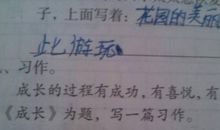 子，上面写着：花园的美丽
此游玩
、习作。
成长的过程有成功，有喜悦，有
《成长》为题，写一篇习作。